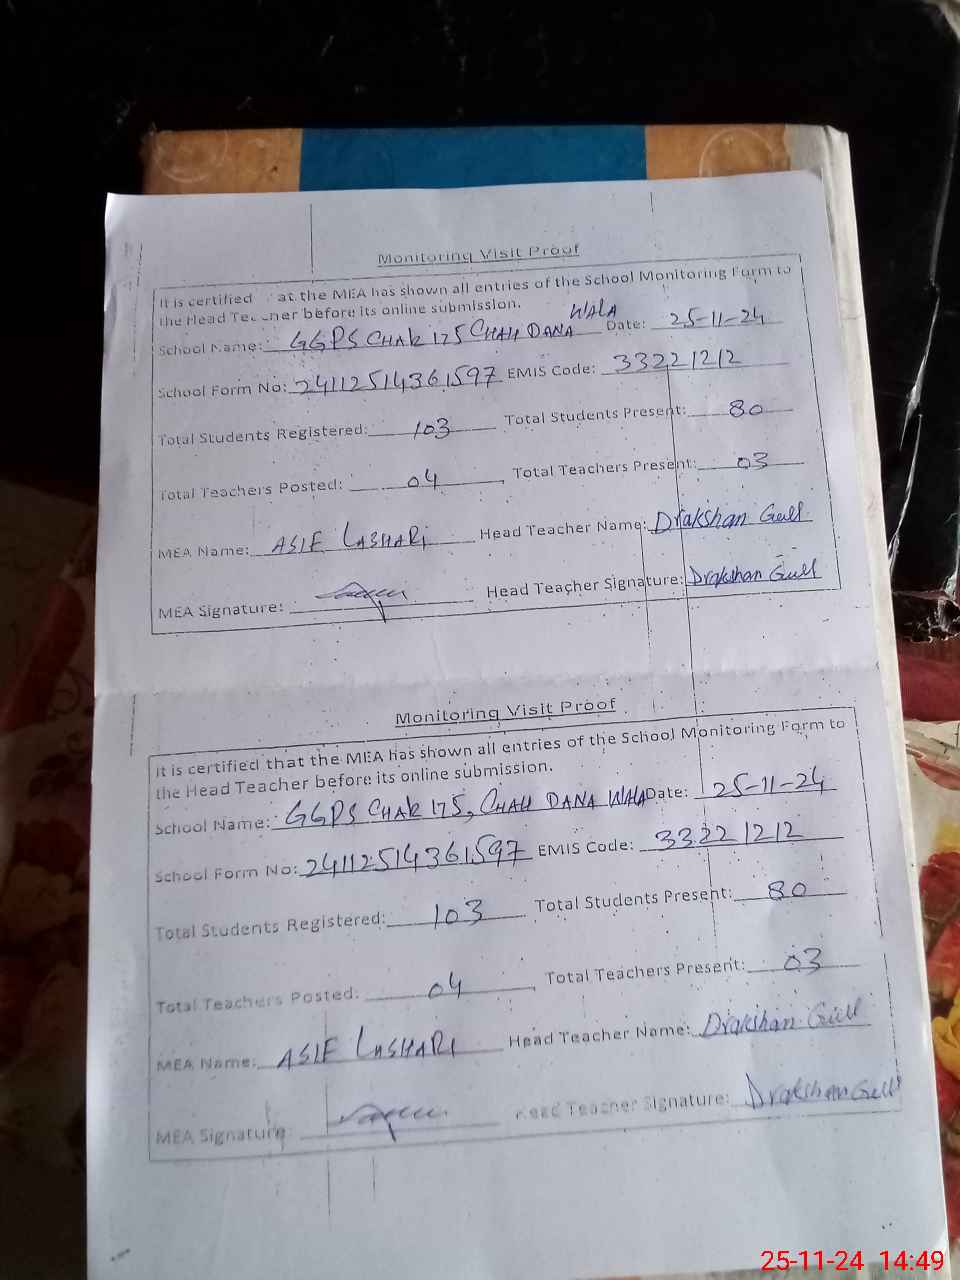 Monitoring Visit Proof
It is certified at the MEA has shown all entries of the School Monitoring Form to
the Head Teacher before its online submission.
School Name: GGPS CHAK 175 CHAH DANA WALA Date: 25-11-24
School Form No: 24112514361597 EMIS Code: 33221212
Total Students Registered: 103 Total Students Present: 80
Total Teachers Posted: 04, Total Teachers Present: 03
MEA Name: ASIF LASHARI Head Teacher Name: Drakshan Gull
MEA Signature: Head Teacher Signature: Drakshan Gull
Monitoring Visit Proof
It is certified that the MEA has shown all entries of the School Monitoring Form to
the Head Teacher before its online submission.
School Name: GGPS CHAK 175, CHAH DANA WALA Date: 25-11-24
School Form No: 24112514361597 EMIS Code: 33221212
Total Students Registered: 103 Total Students Present: 80
Total Teachers Posted: 04, Total Teachers Present: 03
MEA Name: ASIF LASHARI Head Teacher Name: Drakshan Gull
MEA Signature: Head Teacher Signature: Drakshan Gull
25-11-24 14:49